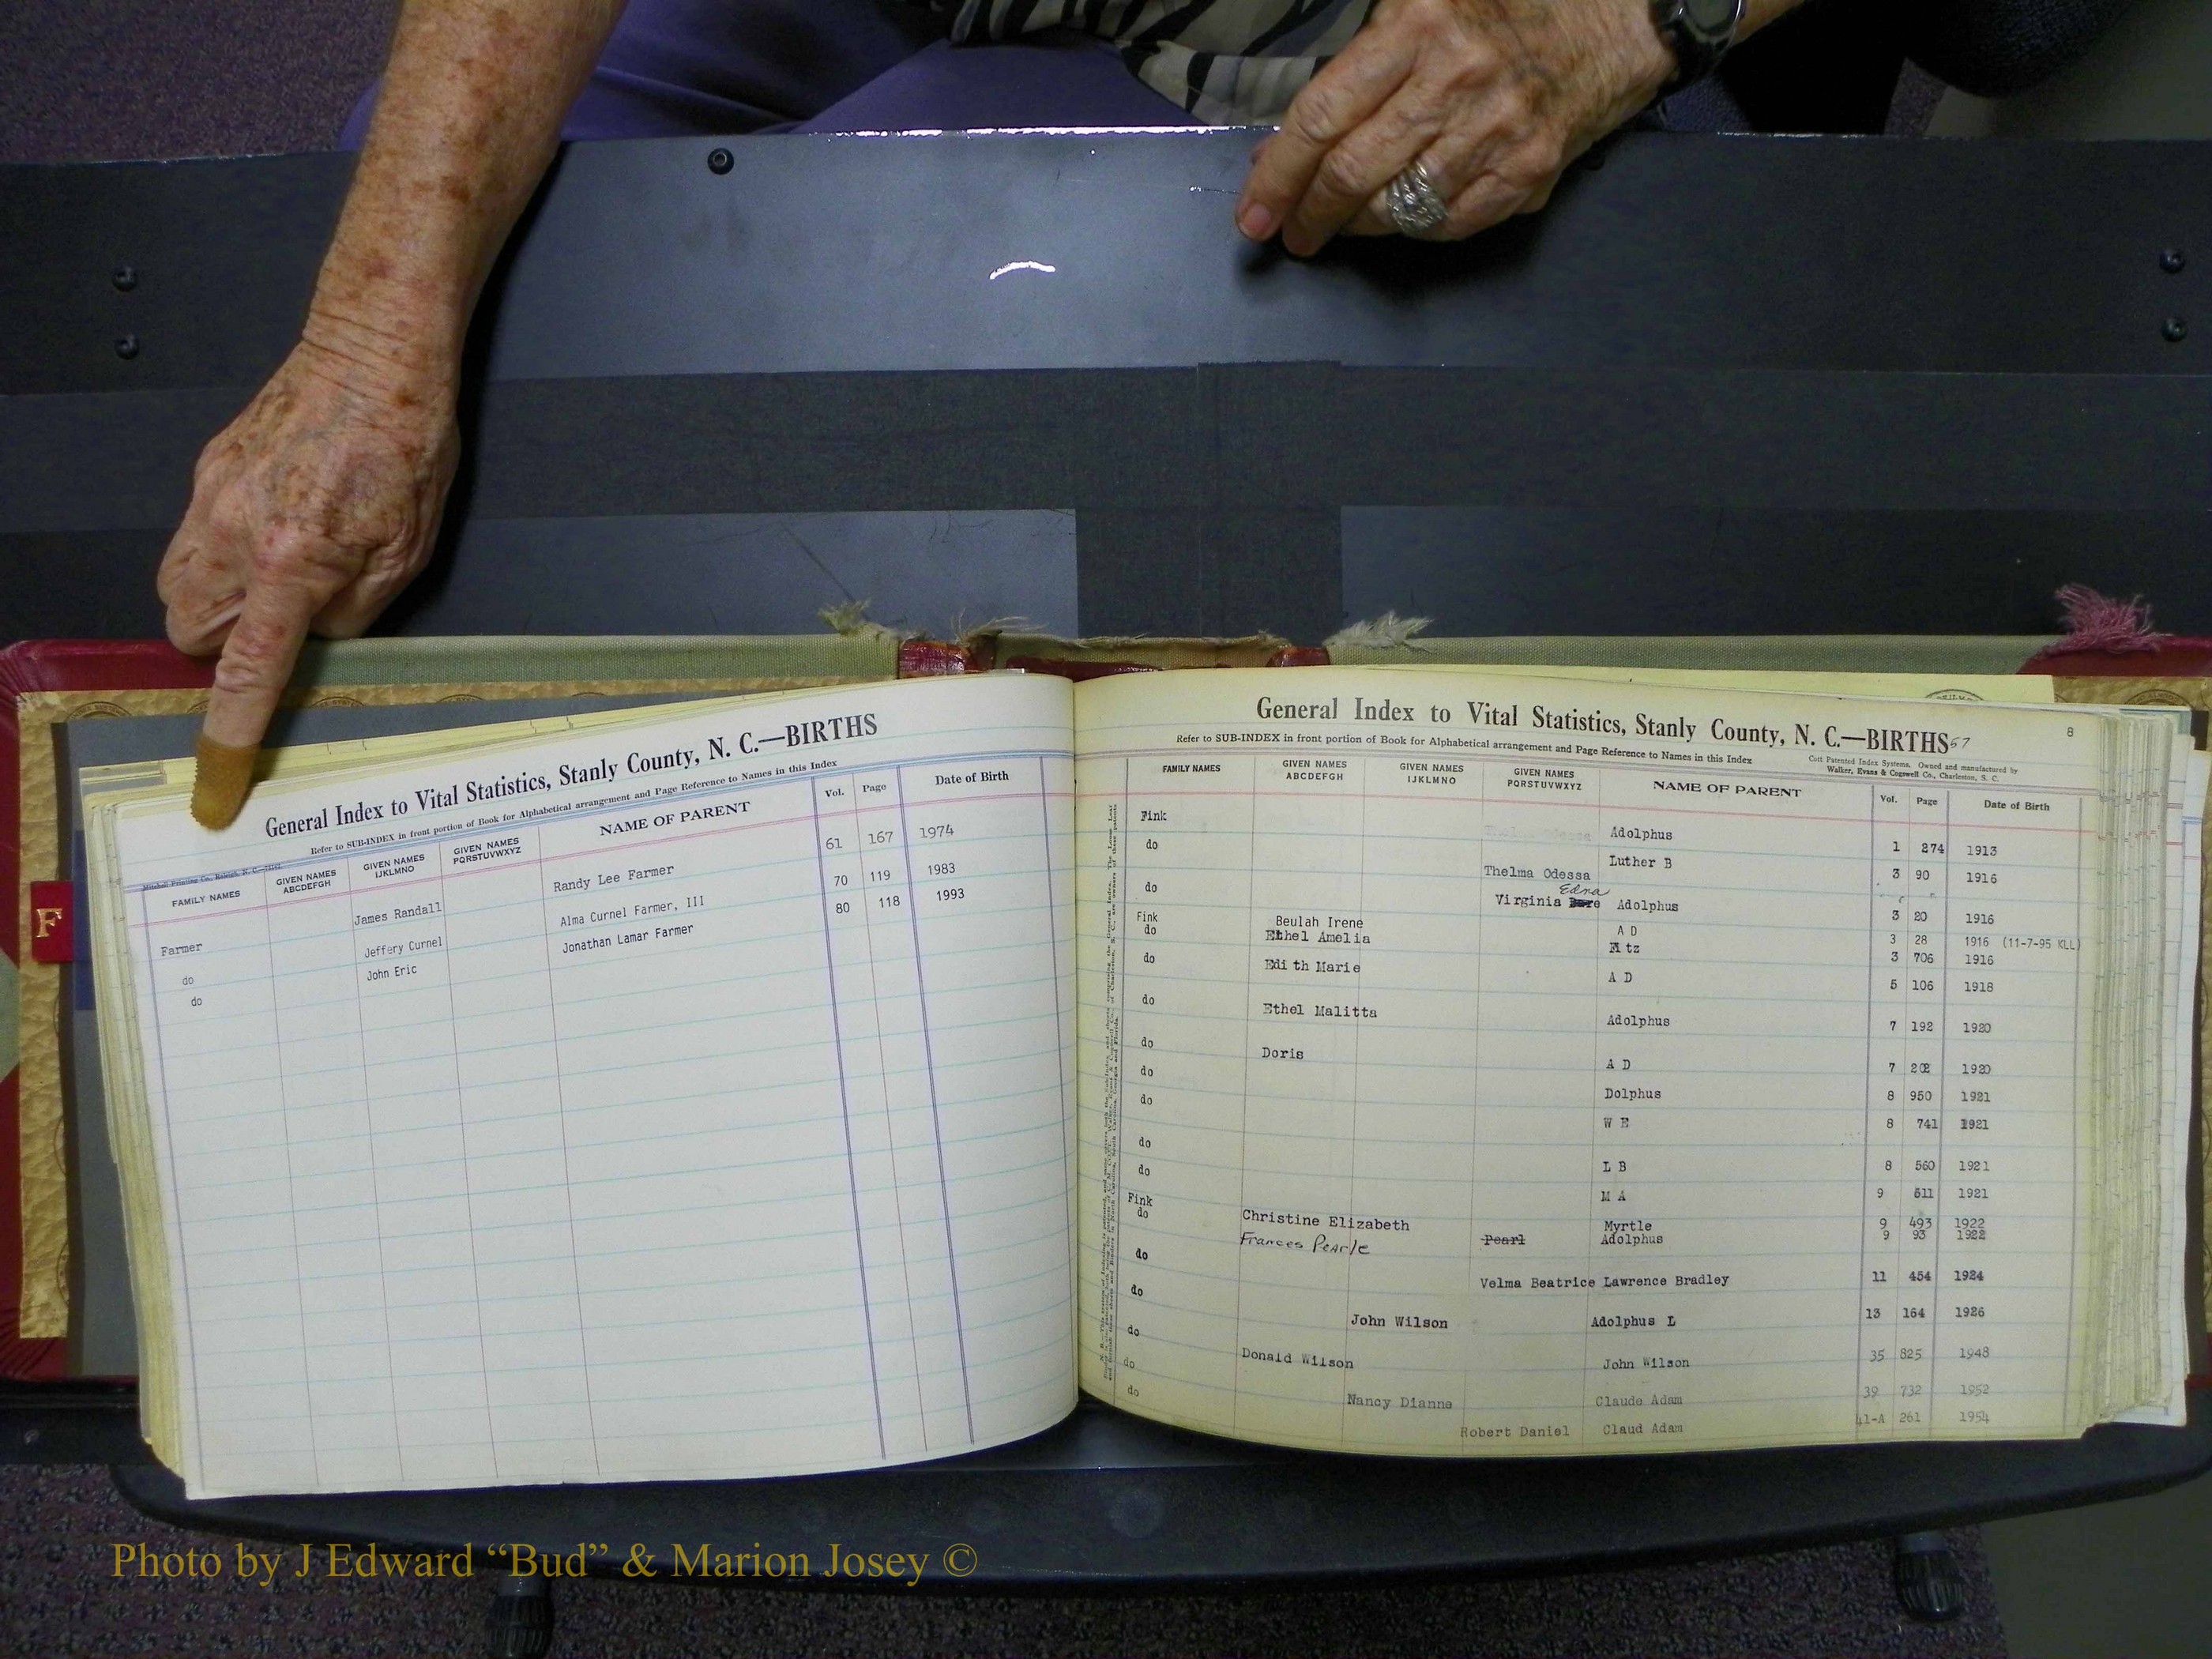 General Index to Vital Statistics, Stanly County, N. C.—BIRTHS
Refer to SUB-INDEX in front portion of Book for Alphabetical arrangement and Page Reference to Names in this Index
FAMILY NAMES GIVEN NAMES ABCDEFGH GIVEN NAMES IJKLMNO GIVEN NAMES PQRSTUVWXYZ NAME OF PARENT Vol. Page Date of Birth
Farmer James Randall Randy Lee Farmer 61 167 1974
do Jeffery Curnel Alma Curnel Farmer, III 70 119 1983
do John Eric Jonathan Lamar Farmer 80 118 1993
F
General Index to Vital Statistics, Stanly County, N. C.—BIRTHS 57
8
Refer to SUB-INDEX in front portion of Book for Alphabetical arrangement and Page Reference to Names in this Index
Cott Patented Index Systems. Owned and manufactured by
Walker, Evans & Cogswell Co., Charleston, S. C.
FAMILY NAMES GIVEN NAMES ABCDEFGH GIVEN NAMES IJKLMNO GIVEN NAMES PQRSTUVWXYZ NAME OF PARENT Vol. Page Date of Birth
Fink Adolphus 1 274 1913
do Thelma Odessa Luther B 3 90 1916
do Virginia Edna Adolphus 3 20 1916
Fink Beulah Irene A D 3 28 1916 (11-7-95 KLL)
do Ethel Amelia tz 3 706 1916
do Edith Marie A D 5 106 1918
do Ethel Malitta Adolphus 7 192 1920
do Doris A D 7 202 1920
do Dolphus 8 950 1921
do W E 8 741 1921
do L B 8 560 1921
do M A 9 511 1921
Fink Christine Elizabeth Myrtle 9 493 1922
do Frances Pearle Pearl Adolphus 9 93 1922
do Velma Beatrice Lawrence Bradley 11 454 1924
do John Wilson Adolphus L 13 164 1926
do Donald Wilson John Wilson 35 825 1948
do Nancy Dianne Claude Adam 39 732 1952
do Robert Daniel Claud Adam 41-A 261 1954
Photo by J Edward “Bud” & Marion Josey ©